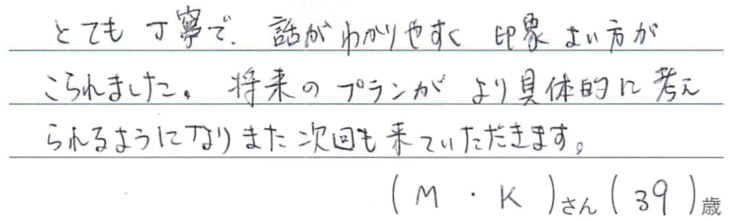 とても丁寧で、話がわかりやすく 印象よい方が
こられました。将来のプランがより具体的に考え
られるようになりまた次回も来ていただきます。
(M・K)さん(39)歳